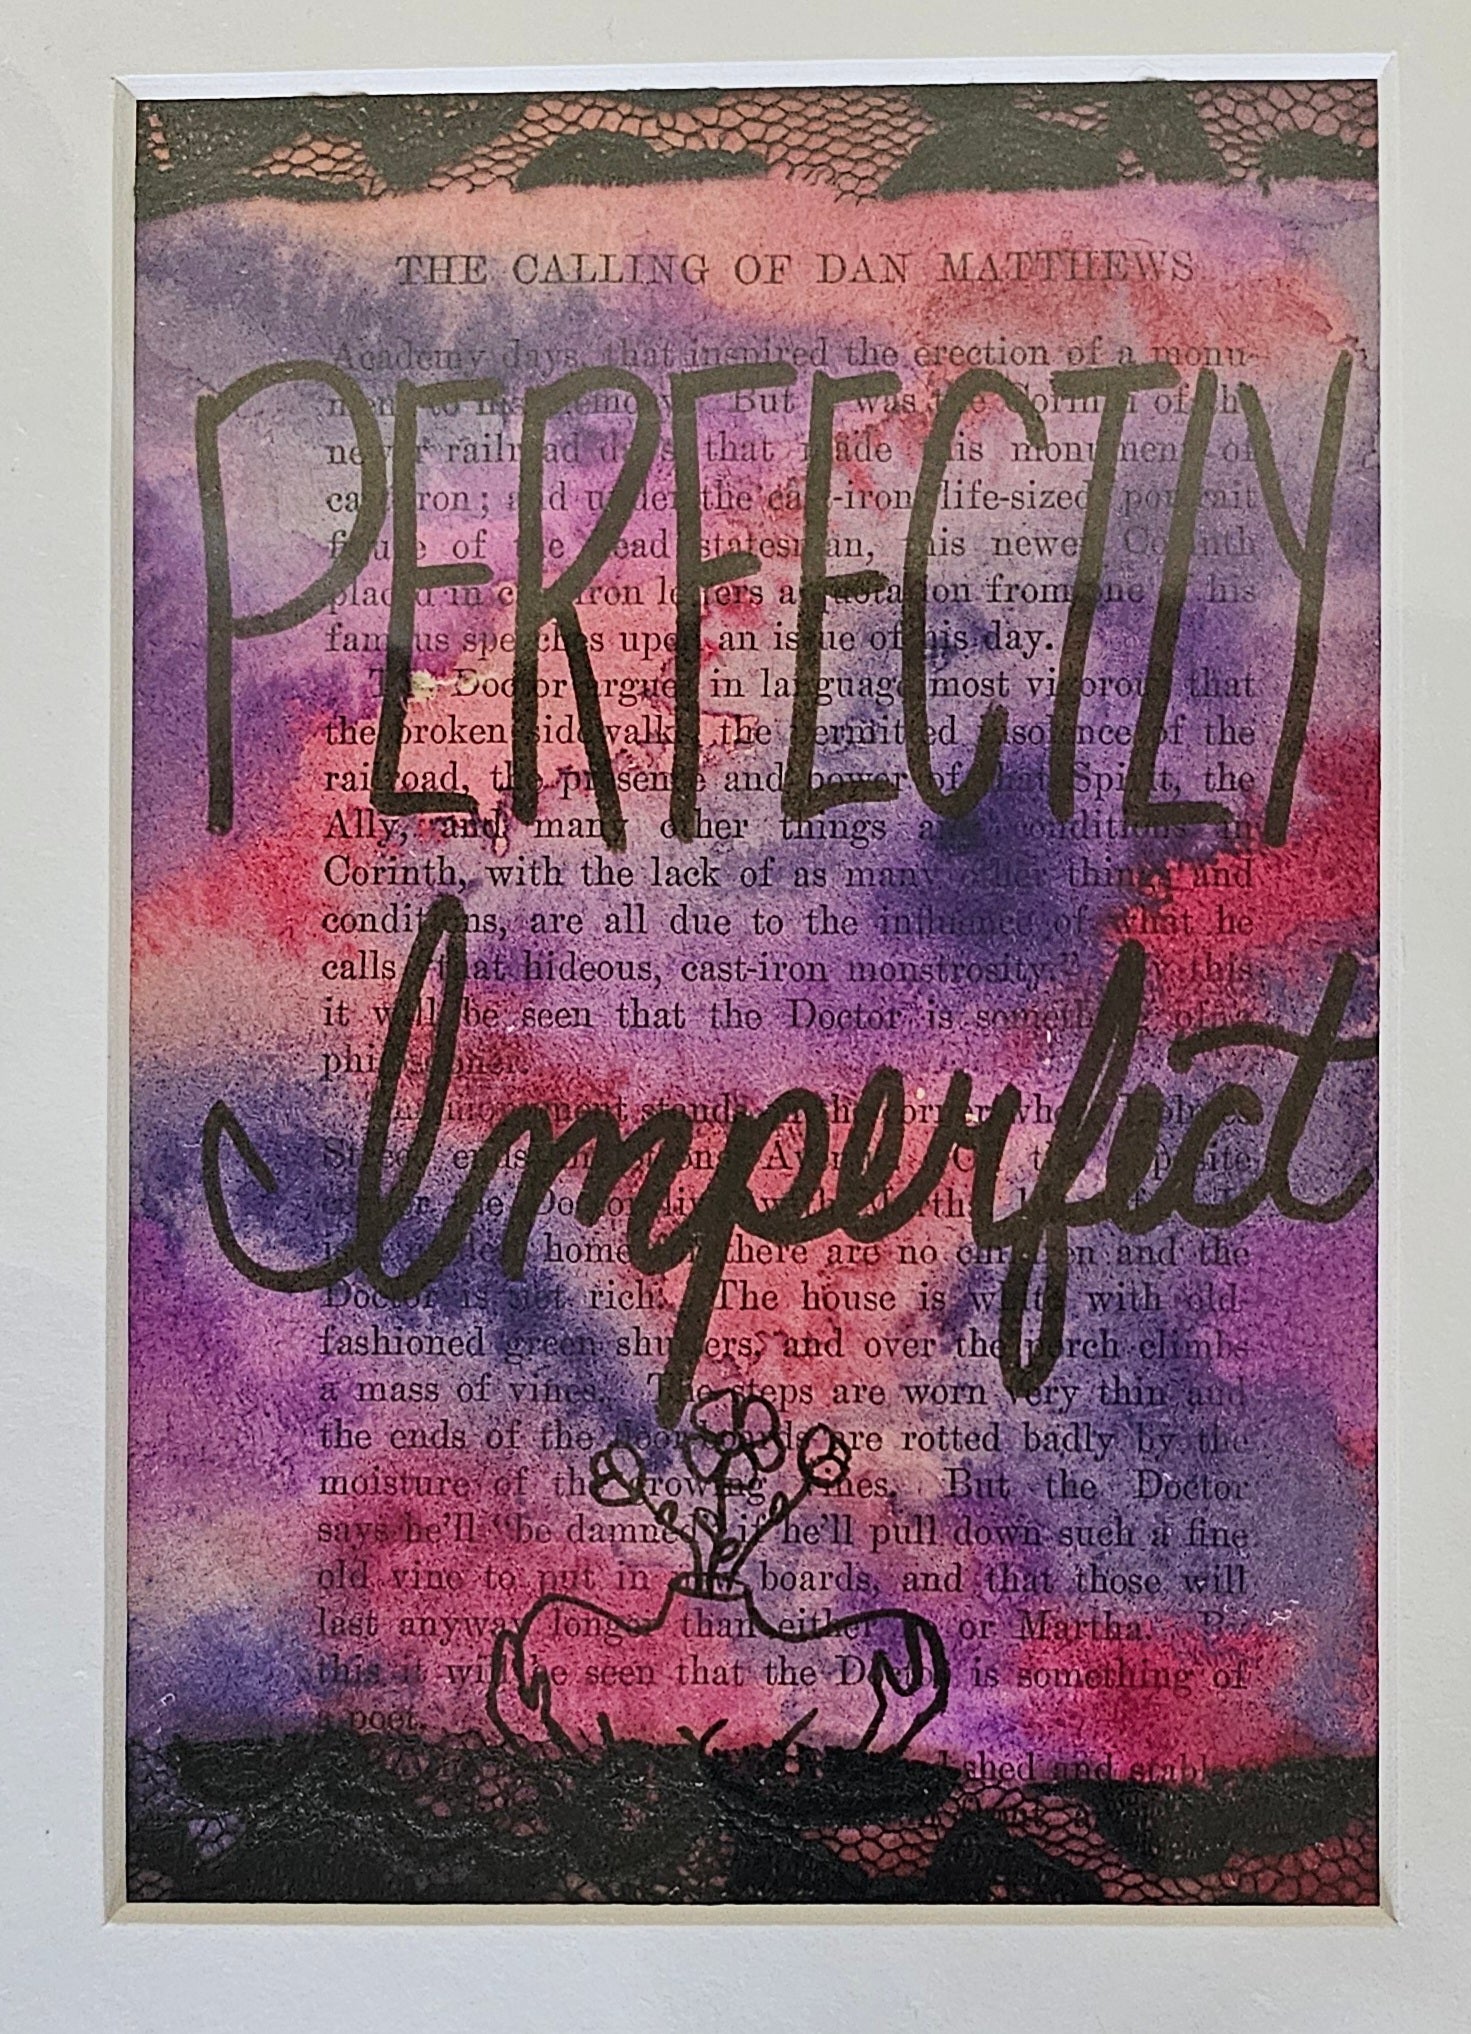 THE CALLING OF DAN MATTHEWS
Academy days, that inspired the erection of a monu-
PERFECTLY
ment to his memory. But it was the Corinth of the
newer railroad days that made this monument of
cast-iron; and under the cast-iron life-sized portrait
figure of the dead statesman, this newer Corinth
placed in cast-iron letters a quotation from one of his
famous speeches upon an issue of his day.
The Doctor argues in language most vigorous that
the broken sidewalks, the permitted insolence of the
railroad, the presence and power of that Spirit, the
Ally, and many other things and conditions in
Corinth, with the lack of as many other things and
conditions, are all due to the influence of what he
calls "that hideous, cast-iron monstrosity." By this
it will be seen that the Doctor is something of a
philosopher.
Imperfect
The monument stands on the corner where Holmes
Street ends in Avenue. On the opposite
corner the Doctor lives with Martha, his wife. It
is a modest home for there are no children and the
Doctor is not rich. The house is white with old-
fashioned green shutters, and over the porch climbs
a mass of vines. The steps are worn very thin and
the ends of the floor-boards are rotted badly by the
moisture of the growing vines. But the Doctor
says he'll "be damned" if he'll pull down such a fine
old vine to put in new boards, and that those will
last anyway longer than either he or Martha. By
this it will be seen that the Doctor is something of
a poet.
shed and stable